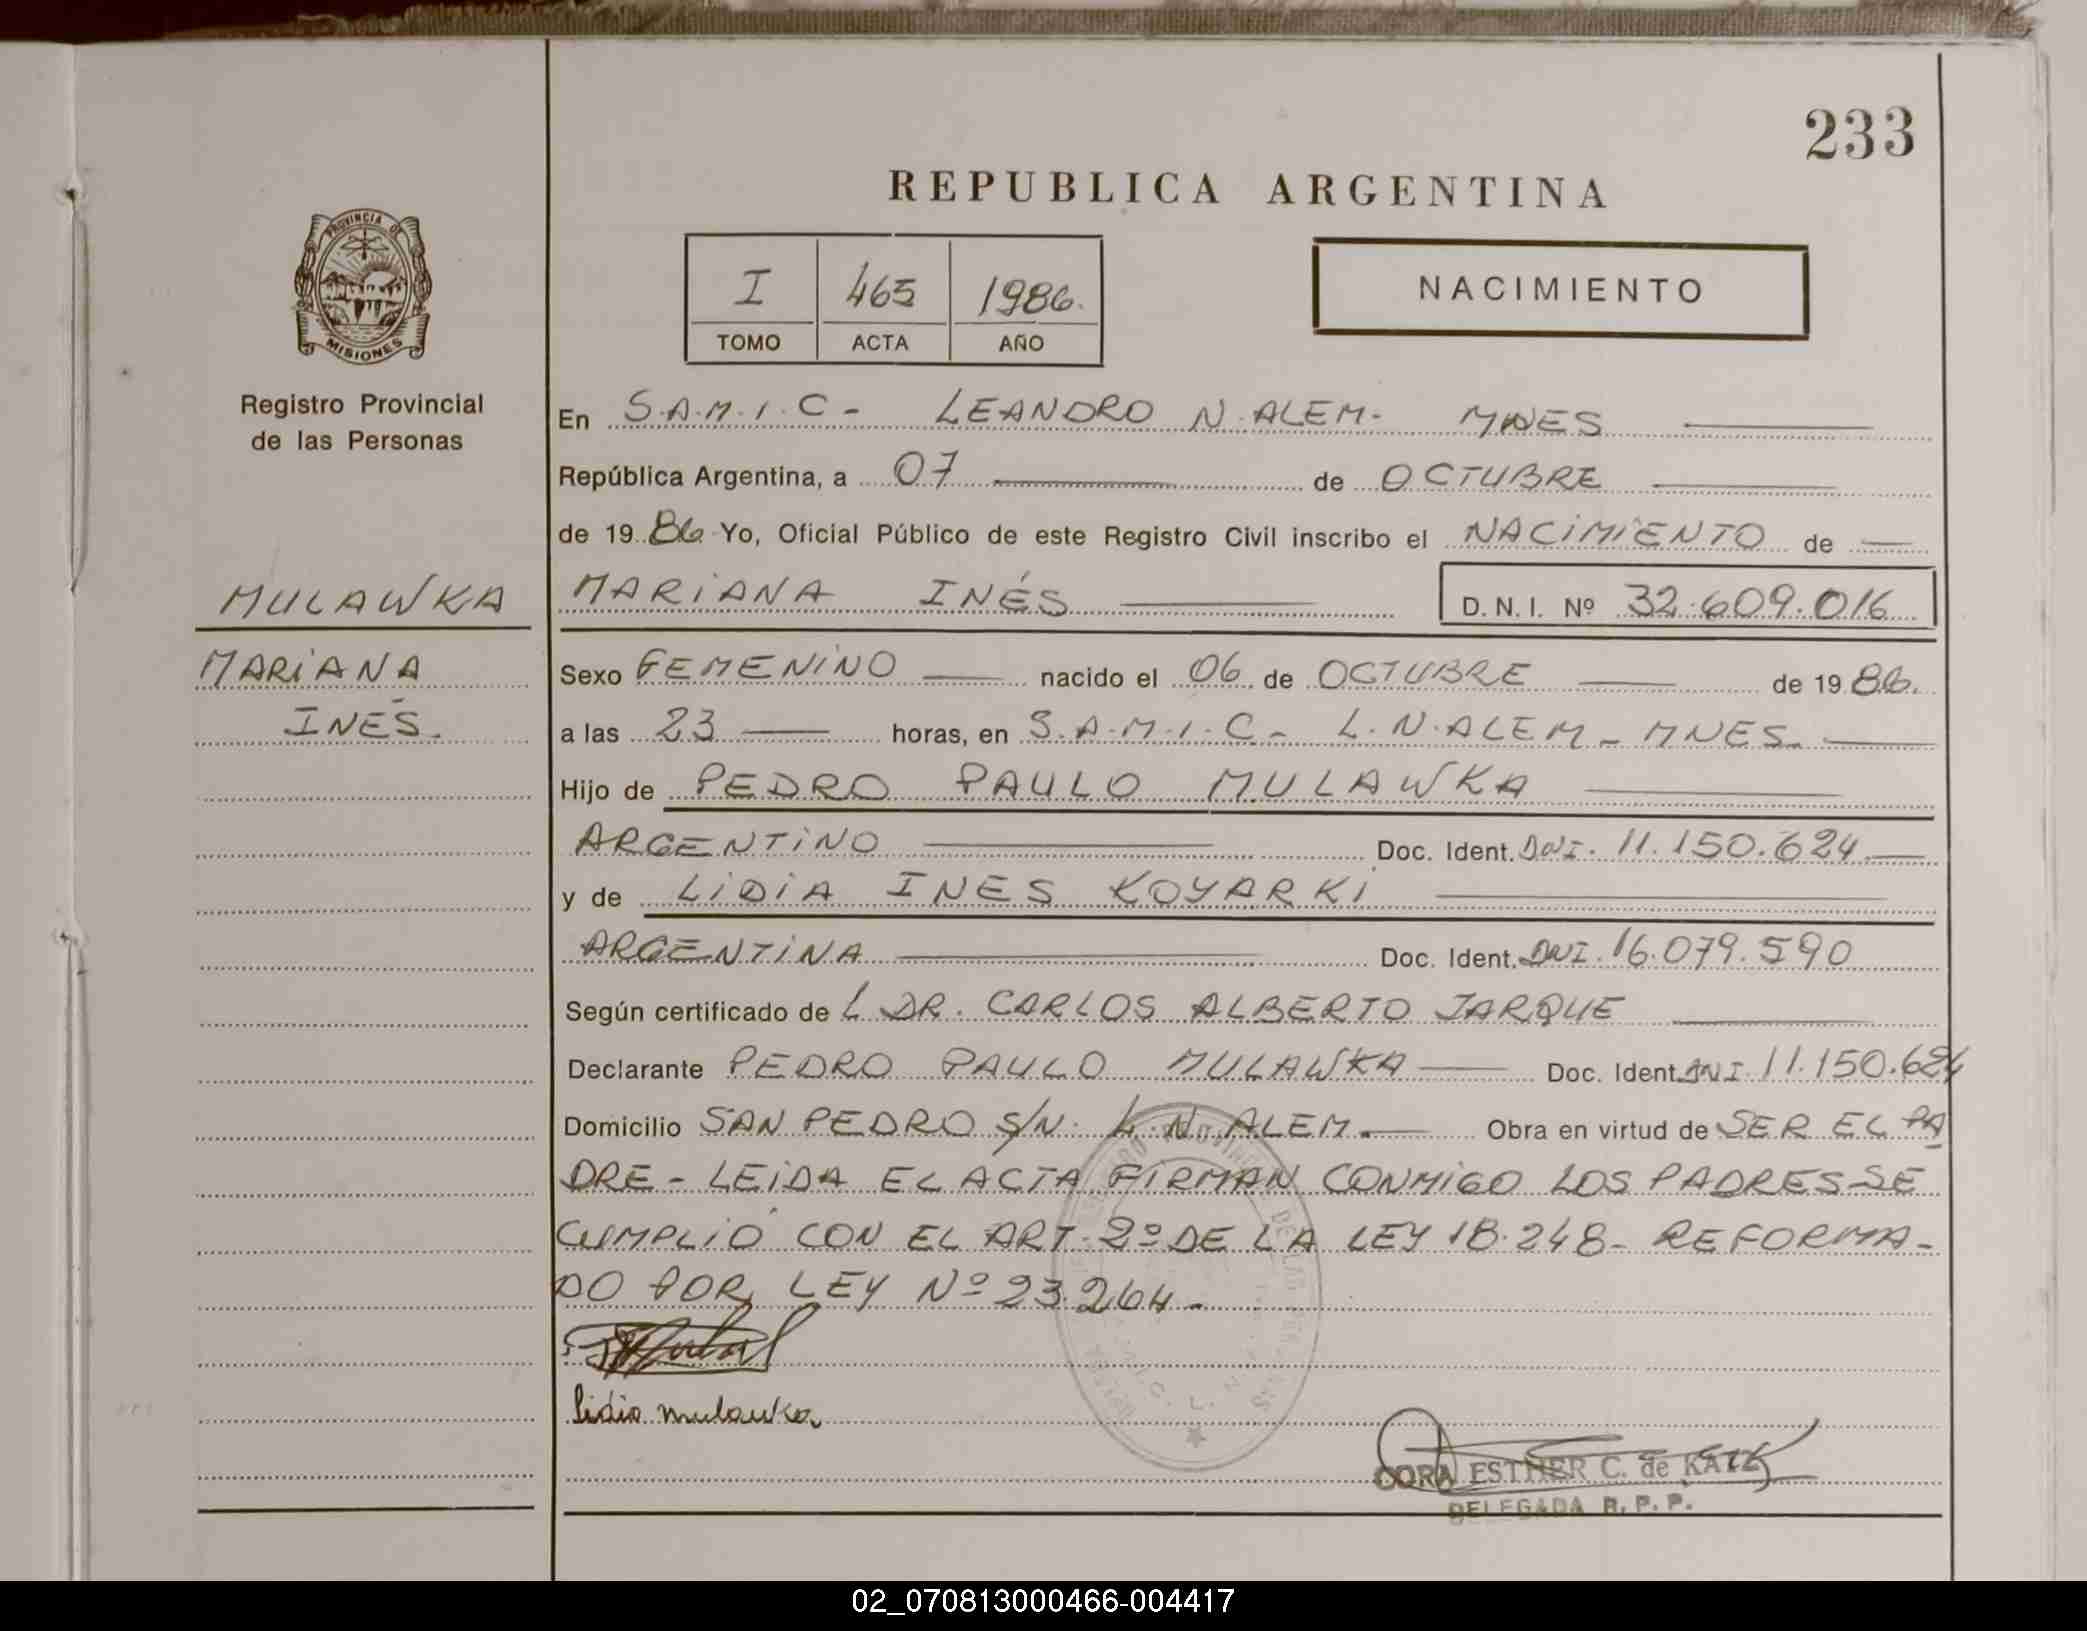 233
REPUBLICA ARGENTINA
PROVINCIA DE
MISIONES
Registro Provincial
de las Personas
I 465 1986.
TOMO ACTA AÑO
NACIMIENTO
En S.A.M.I.C - LEANDRO N. ALEM - MNES
República Argentina, a 07 de OCTUBRE
de 1986 Yo, Oficial Público de este Registro Civil inscribo el NACIMIENTO de
MULAWKA
MARIANA INÉS D.N.I. Nº 32.609.016
MARIANA
INÉS.
Sexo FEMENINO nacido el 06 de OCTUBRE de 1986.
a las 23 horas, en S.A.M.I.C - L.N. ALEM - MNES.
Hijo de PEDRO PAULO MULAWKA
ARGENTINO Doc. Ident. DNI. 11.150.624
y de LIDIA INES KOYARKI
ARGENTINA Doc. Ident. DNI. 16.079.590
Según certificado de L DR. CARLOS ALBERTO JARQUE
Declarante PEDRO PAULO MULAWKA Doc. Ident. DNI 11.150.624
Domicilio SAN PEDRO S/N. L.N. ALEM. Obra en virtud de SER EL PA
DRE - LEIDA EL ACTA FIRMAN CONMIGO LOS PADRES-SE
CUMPLIÓ CON EL ART. 2º DE LA LEY 18.248- REFORMA-
DO POR LEY Nº 23.264-
lidia mulawka
CORA ESTHER C. de KATZ
DELEGADA R. P. P.
02_070813000466-004417